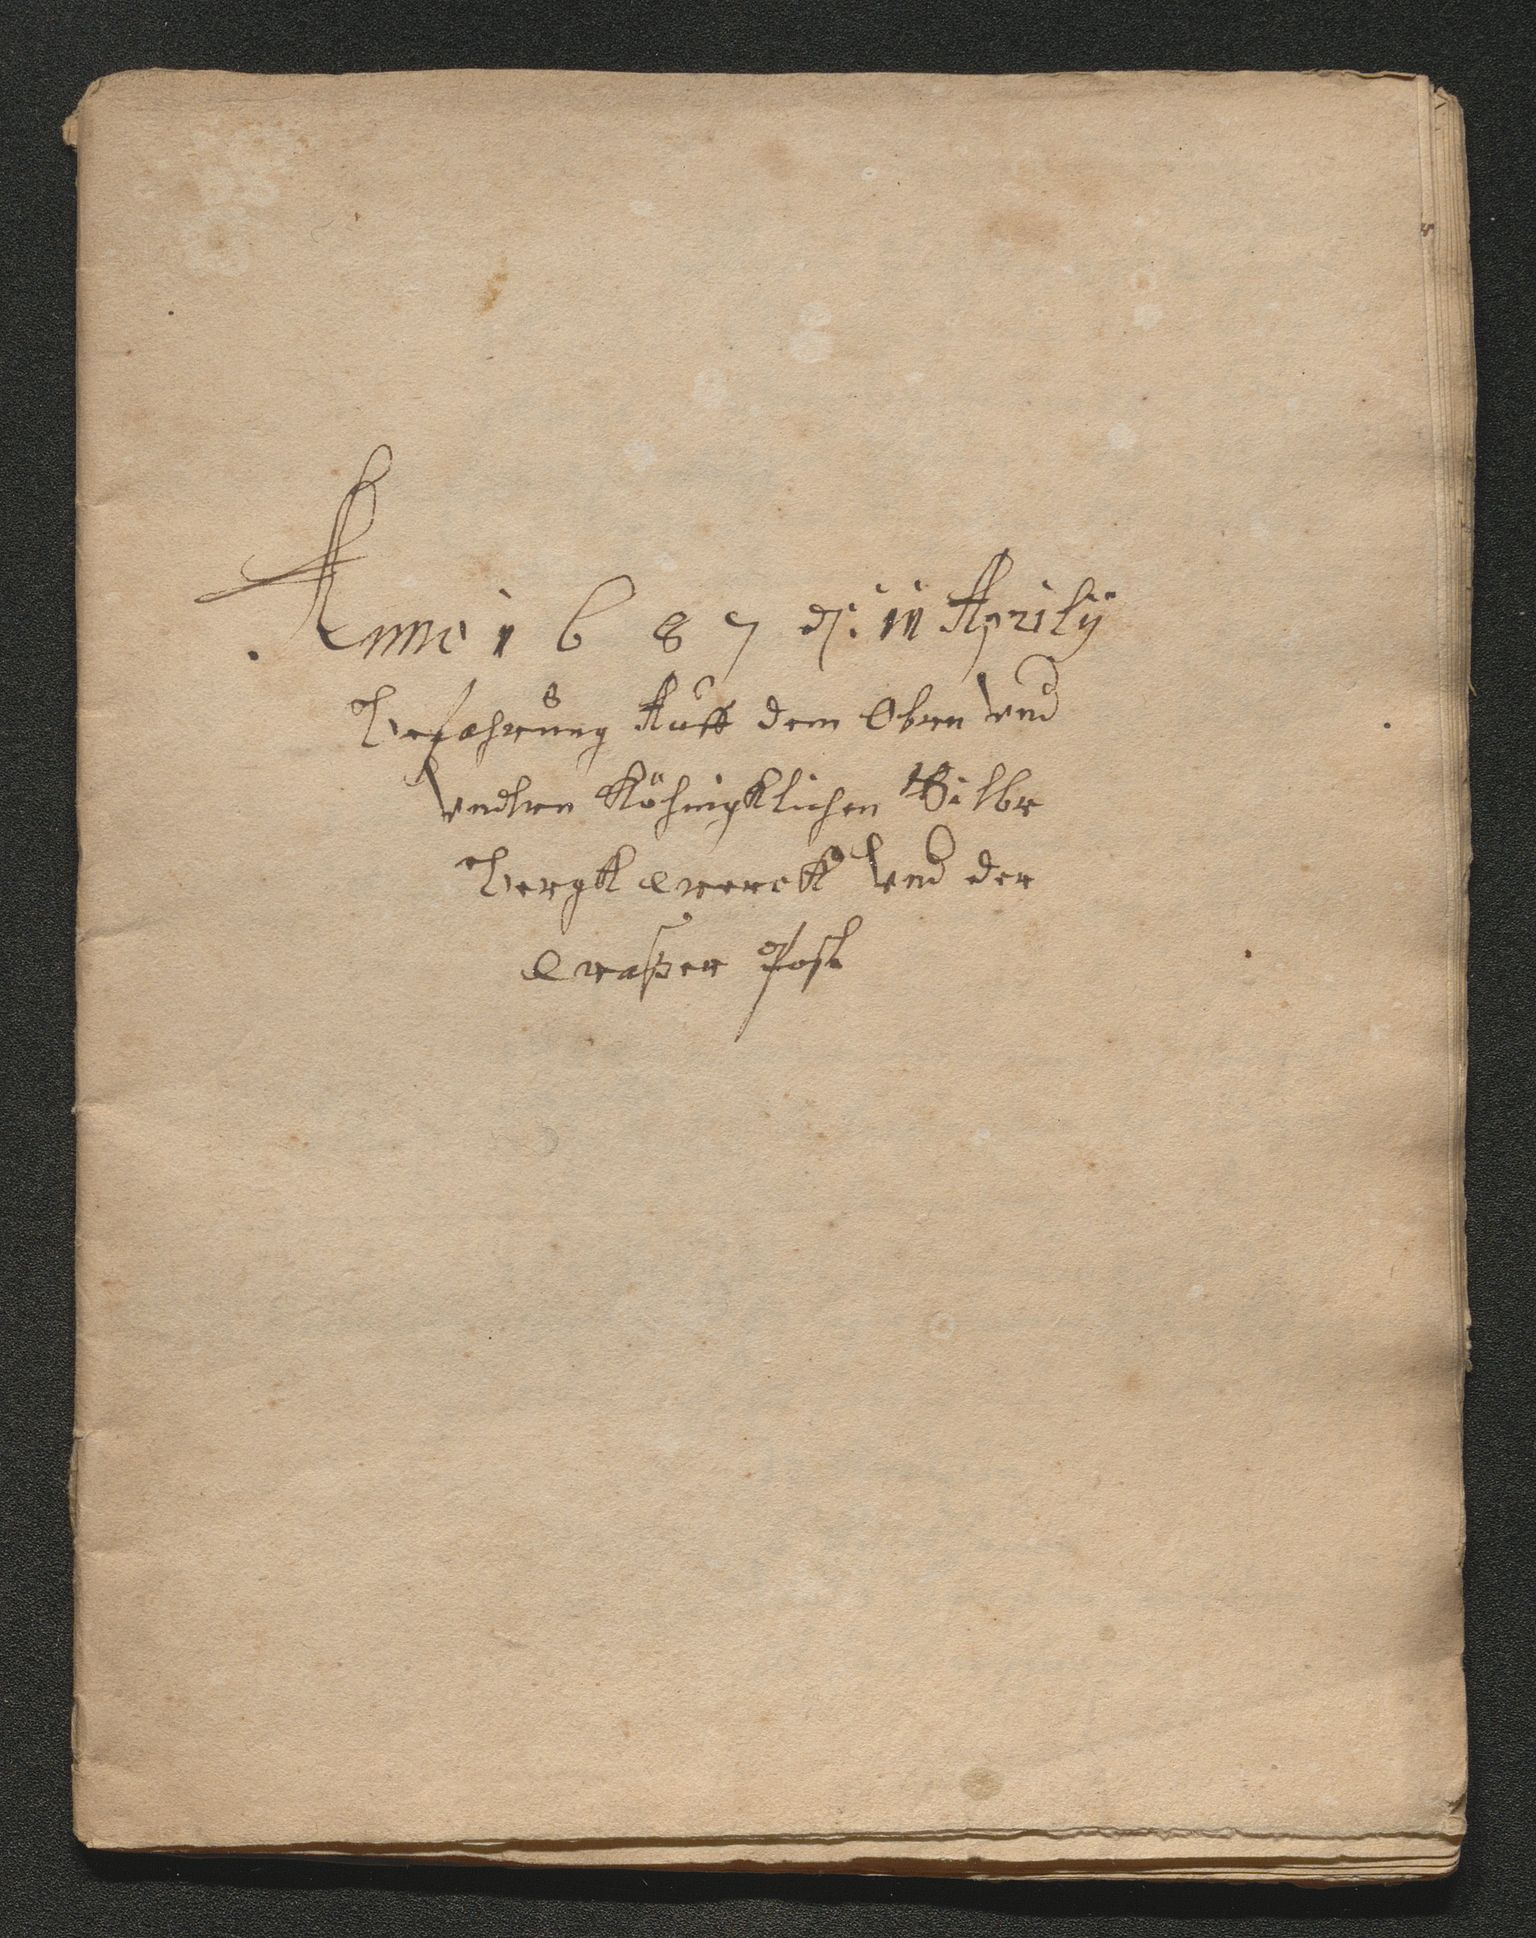 Anno 1687 d: 11 Aprilÿ
Befahrung Auff dem Obern Vnd
Vndtern Köhnigklichen Silber
Bergkwerck Vnd der
Waßer Post